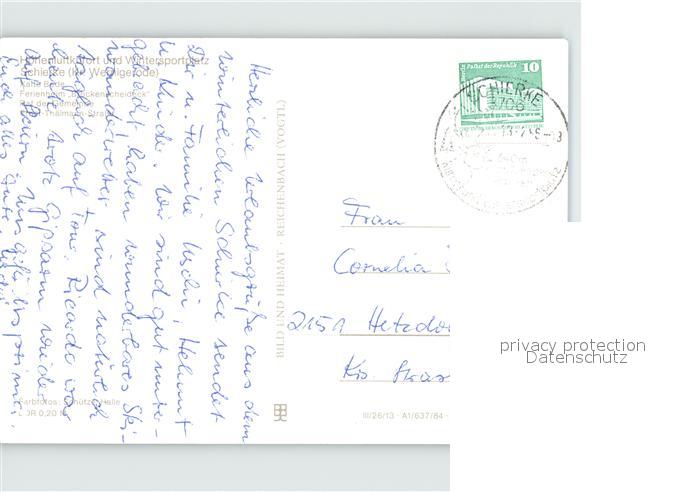 Höhenluftkurort und Wintersportplatz
Schierke (Kr. Wernigerode)
Kalte Bode
Ferienheim "Brockenscheideck"
Rat der Gemeinde
Ernst-Thälmann-Straße
Herzliche Urlaubsgrüße aus dem
winterlichen Schierke sendet
Dir u. Familie Uschi, Helmut
u. Kinder. Wir sind gut unter-
gebracht haben wunderbares Ski-
u. Wanderwetter sind natürlich
auf Tour. Ricardo
trotz Gipsarm wieder
Uns geht's prima.
Ende alles Gute,
Farbfotos: Schütze, Halle
DDR 0,20 M
BILD UND HEIMAT · REICHENBACH (VOGTL)
III/26/13 · A1/637/84
Palast der Republik 10
SCHIERKE
3706
Frau
Cornelia
2151 Hetzdo
Krs. Stras
privacy protection
Datenschutz